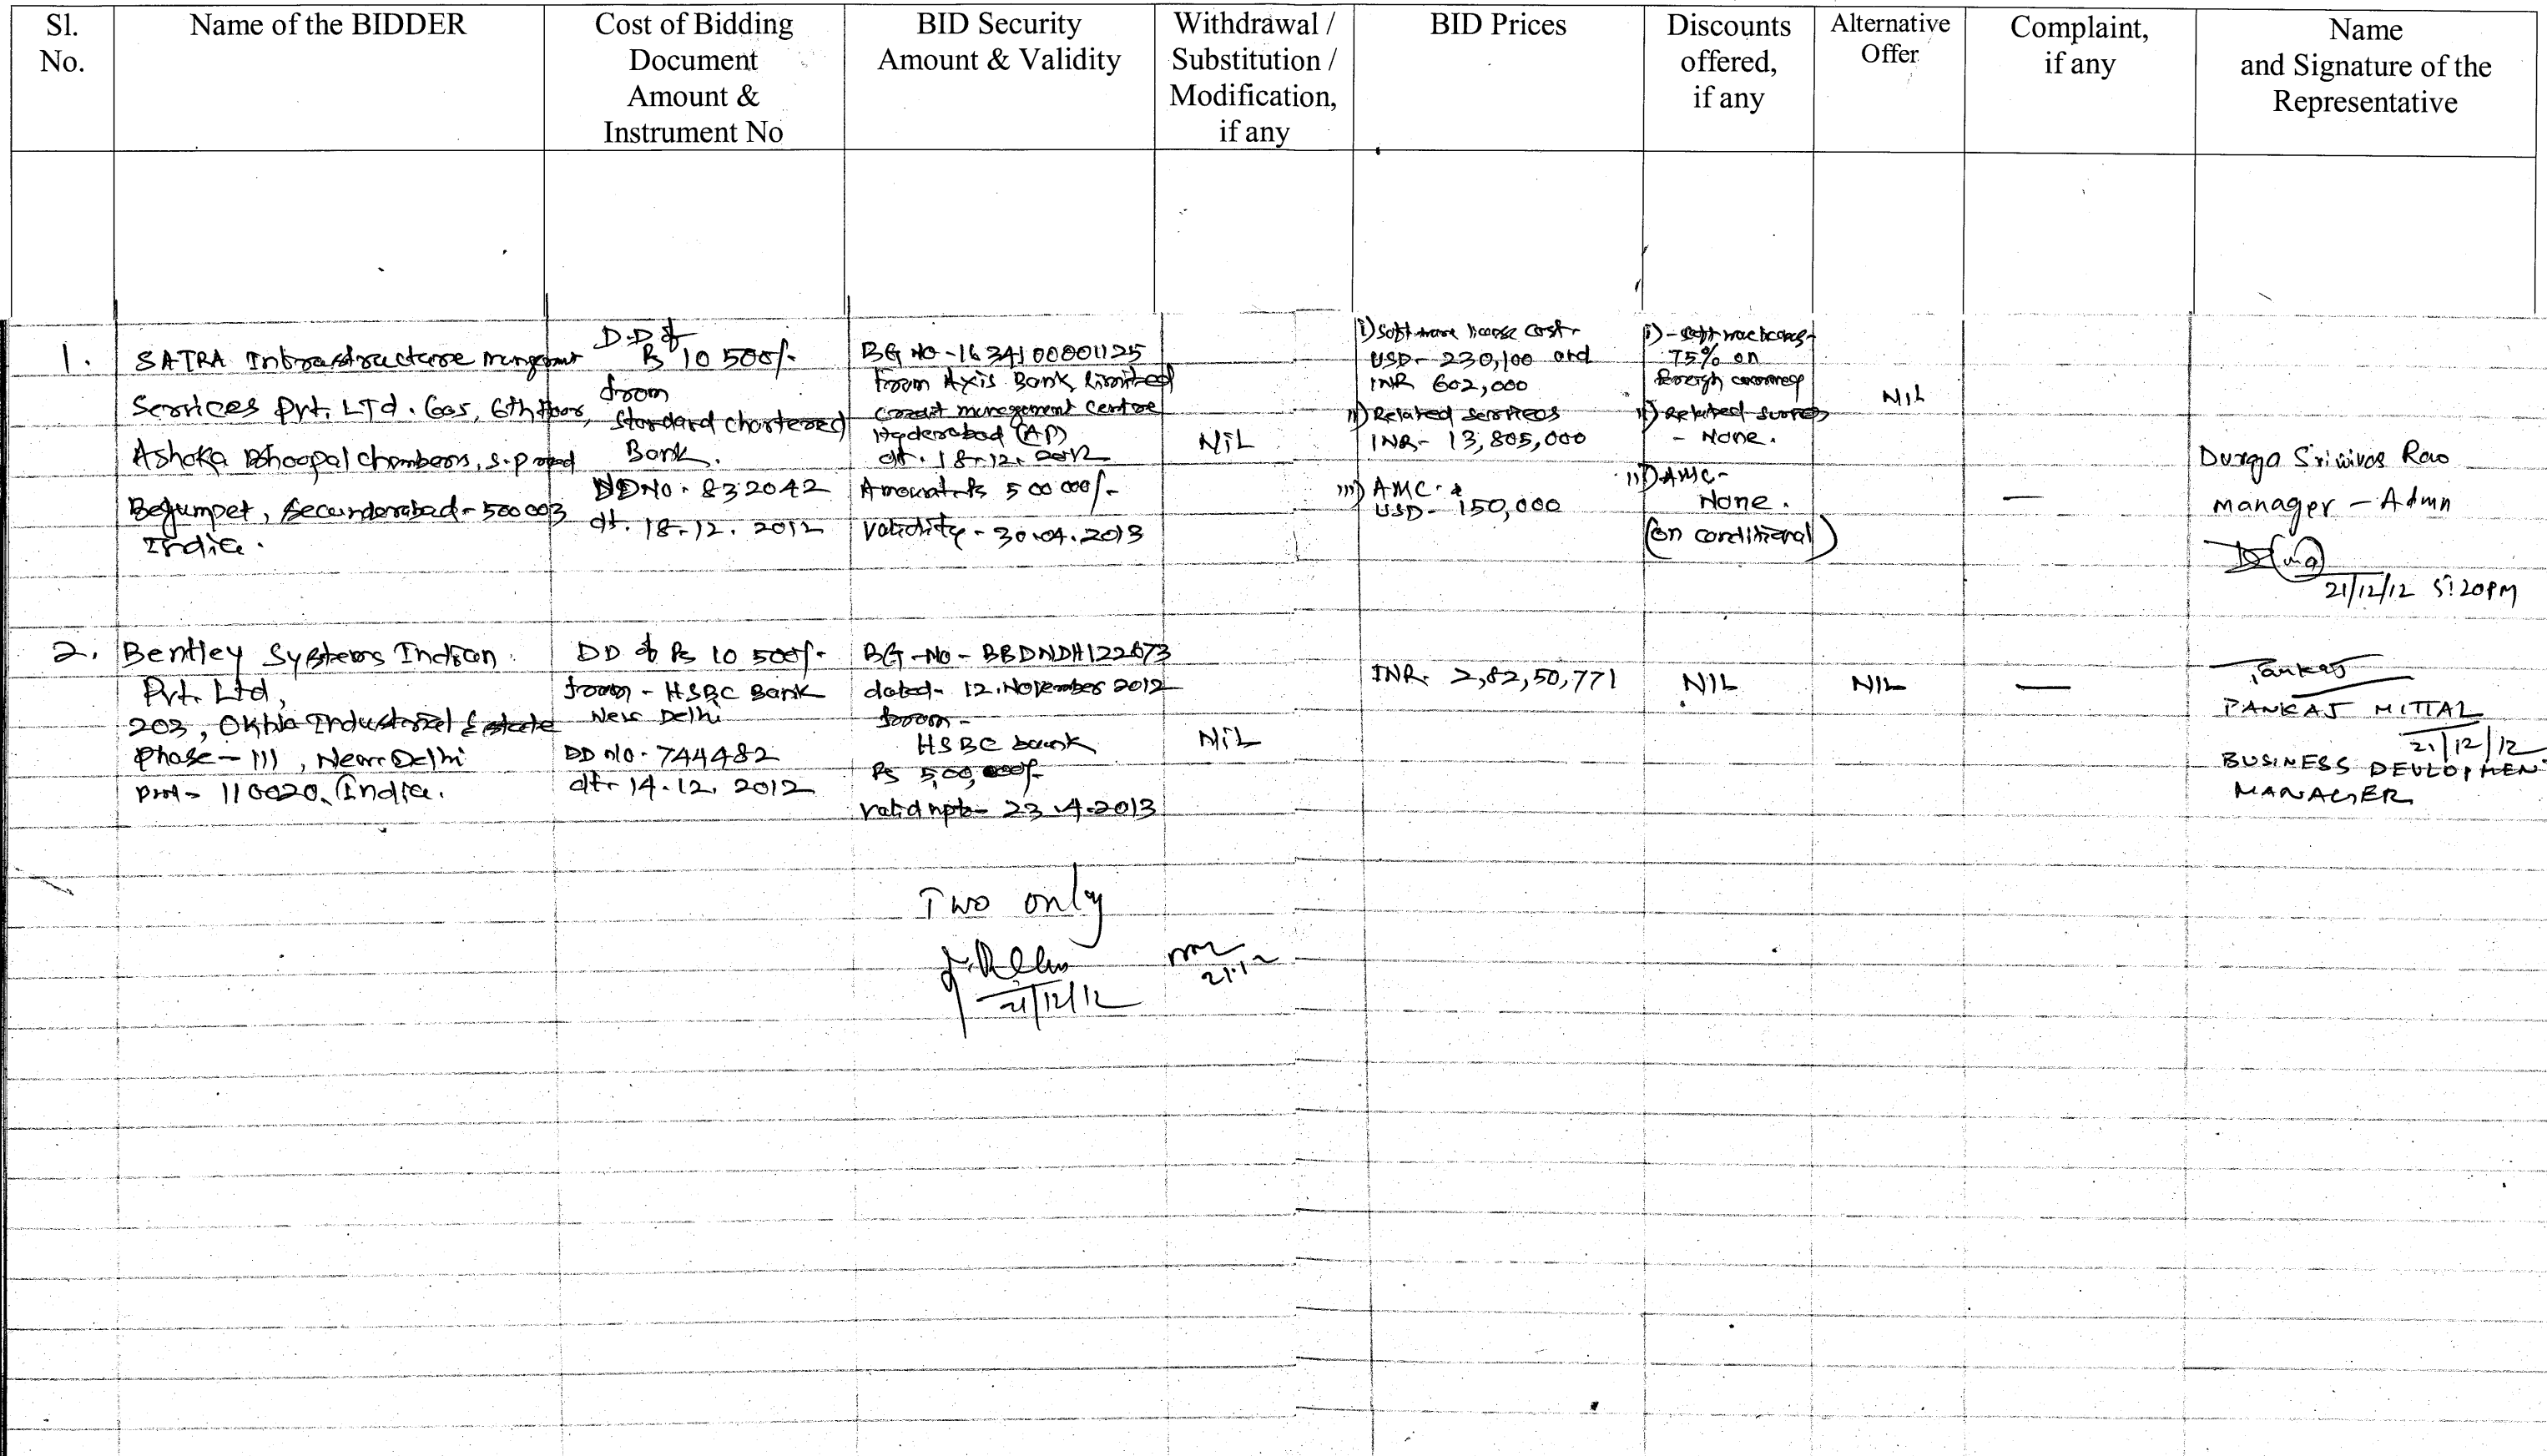 Sl.
No.
Name of the BIDDER
Cost of Bidding
Document
Amount &
Instrument No
BID Security
Amount & Validity
Withdrawal /
Substitution /
Modification,
if any
BID Prices
Discounts
offered,
if any
Alternative
Offer
Complaint,
if any
Name
and Signature of the
Representative
1.
SATRA Infrastructure
Services Pvt. LTd. 605, 6th floor,
Ashoka Bhoopal chambers, S.P road
Begumpet, Secunderabad - 500 003
India.
D.D of
Rs 10 500/-
from
Standard chartered
Bank.
DD No. 832042
dt. 18-12. 2012
BG NO - 163410000 1125
from Axis Bank Limited
Credit management centre
Hyderabad (AP)
dt. 18-12. 2012
Amount Rs 500 000/-
Validity - 30.04.2013
NiL
i) Software license cost-
USD- 230,100 and
INR 602,000
ii) Related services
INR- 13,805,000
iii) AMC-
USD- 150,000
i) - software
75% on
foreign currency
ii) Related
- None.
iii) AMC-
None.
NiL
—
Durga Srinivas Rao
Manager - Admn
21/12/12 5:20PM
2.
Bentley Systems Indian
Pvt. Ltd,
203, Okhla Industrial Estate
Phase - III, New Delhi
110020, India.
DD of Rs 10 500/-
from - HSBC Bank
New Delhi
DD No. 744482
dt- 14.12. 2012
BG-No - BBDNDH122673
dated- 12.November 2012
from -
HSBC bank
Rs 500,000/-
valid upto- 23.4.2013
NiL
INR. 2,82,50,771
NIL
NIL
—
Pankaj
PANKAJ MITTAL
21/12/12
BUSINESS DEVLOPMEN
MANAGER
Two only
21/12/12
21.12